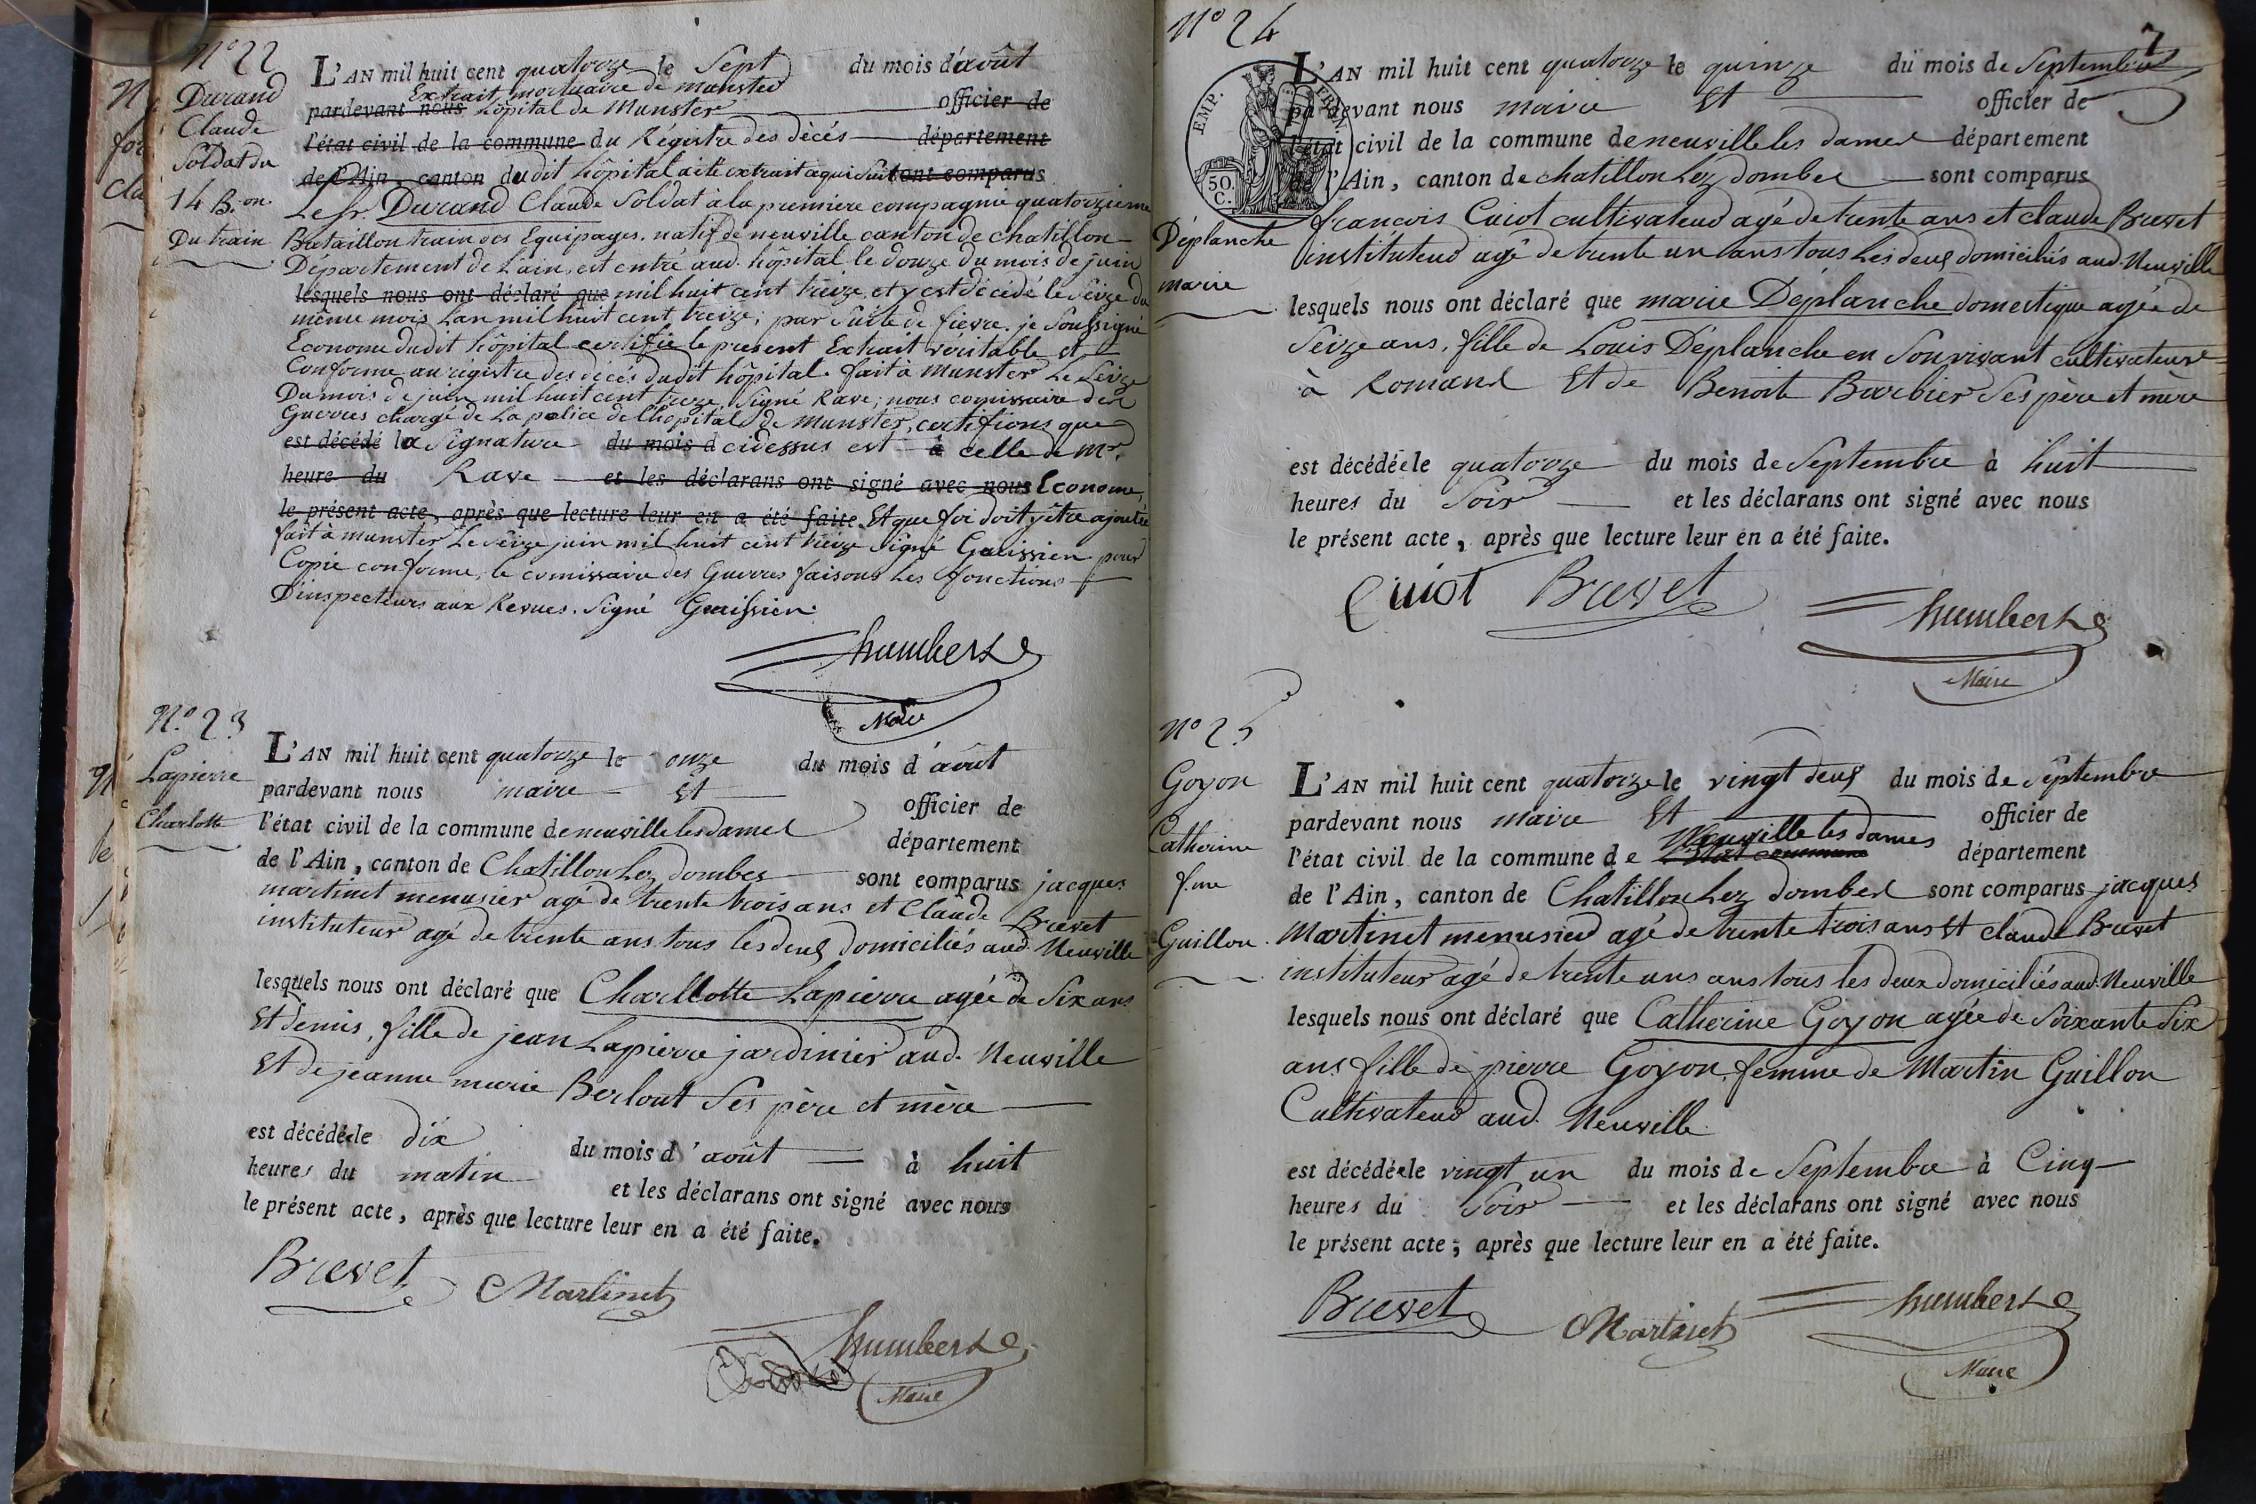 N° 22
Durand
Claude
Soldat du
14 B.on
Du train
L'AN mil huit cent quatorze le Sept du mois d'août
Extrait mortuaire de munster
pardevant nous hôpital de Munster officier de
l'état civil de la commune du Régistre des décés département
de l'Ain, canton dudit hôpital a été extrait a qui suit sont comparus
Le Sr. Durand Claude Soldat à la premiere compagnie quatorzieme
Bataillon train des Equipages, natif de neuville canton de chatillon
Département de Lain, est entré aud. hôpital le douze du mois de juin
lesquels nous ont déclaré que mil huit cent treize, et y est décédé le Seize du
même mois Lan mil huit cent treize, par Suite de fièvre. je Soussigné
Econome dudit hôpital certifie le present Extrait véritable et
Conforme au régistre des décés dudit hôpital. fait à Munster Le Seize
Du mois de juin mil huit cent treize, Signé Rave; nous comissaire des
Guerres chargé de La police de Lhopital de Munster, certifions que
est décédé la Signature du mois d cidessus est à celle de Mr.
heure du Rave et les déclarans ont signé avec nous Econome,
le présent acte, après que lecture leur en a été faite. Et que foi doit y être ajoutée
fait à munster Le Seize juin mil huit cent treize Signé Gaissien pour
Copie conforme, le comissaire des Guerres faisons Les fonctions
D'inspecteurs aux Revues. Signé Gaissien.
humbert
Maire
N.° 23
Lapierre
Charlotte
L'AN mil huit cent quatorze le onze du mois d'août
pardevant nous maire Et officier de
l'état civil de la commune de neuville les dames département
de l'Ain, canton de Chatillon Lez dombes sont comparus jacques
martinet menusier agé de trente trois ans et Claude Brevet
instituteur agé de trente ans tous les deux domiciliés aud. Neuville
lesquels nous ont déclaré que Charllotte Lapierre agée de Six ans
Et demis, fille de jean Lapierre jardinier aud. Neuville
Et de jeanne marie Berlout Ses père et mère
est décédée le dix du mois d'août à huit
heures du matin et les déclarans ont signé avec nous
le présent acte, après que lecture leur en a été faite.
Brevet Martinet
humbert
Maire
N° 24
7
EMP. FRAN.
50.
C.
Déplanche
marie
L'AN mil huit cent quatorze le quinze du mois de Septembre
pardevant nous maire Et officier de
l'état civil de la commune de neuville les dames département
de l'Ain, canton de chatillon Lez dombes sont comparus
francois Cuiot cultivateur agé de trente ans et claude Brevet
instituteur agé de trente un ans tous Les deux domiciliés aud. Neuville
lesquels nous ont déclaré que marie Déplanche domestique agée de
Seize ans, fille de Louis Déplanche en Son vivant cultivateur
à Romans Et de Benoite Barbier Ses père et mère
est décédée le quatorze du mois de Septembre à huit
heures du Soir et les déclarans ont signé avec nous
le présent acte, après que lecture leur en a été faite.
Cuiot Brevet
humbert
Maire
N° 25
Goyon
Catherine
f.me
Guillon.
L'AN mil huit cent quatorze le vingt deux du mois de Septembre
pardevant nous maire Et officier de
l'état civil de la commune de Neuville les dames département
de l'Ain, canton de Chatillon Lez dombes sont comparus jacques
Martinet menusier agé de trente trois ans Et claude Brevet
instituteur agé de trente uns ans tous les deux domiciliés aud. Neuville
lesquels nous ont déclaré que Catherine Goyon agée de Soixante Six
ans fille de pierre Goyon, femme de Martin Guillon
Cultivateur aud. Neuville.
est décédée le vingt un du mois de Septembre à Cinq
heures du Soir et les déclarans ont signé avec nous
le présent acte, après que lecture leur en a été faite.
Brevet Martinet
humbert
Maire